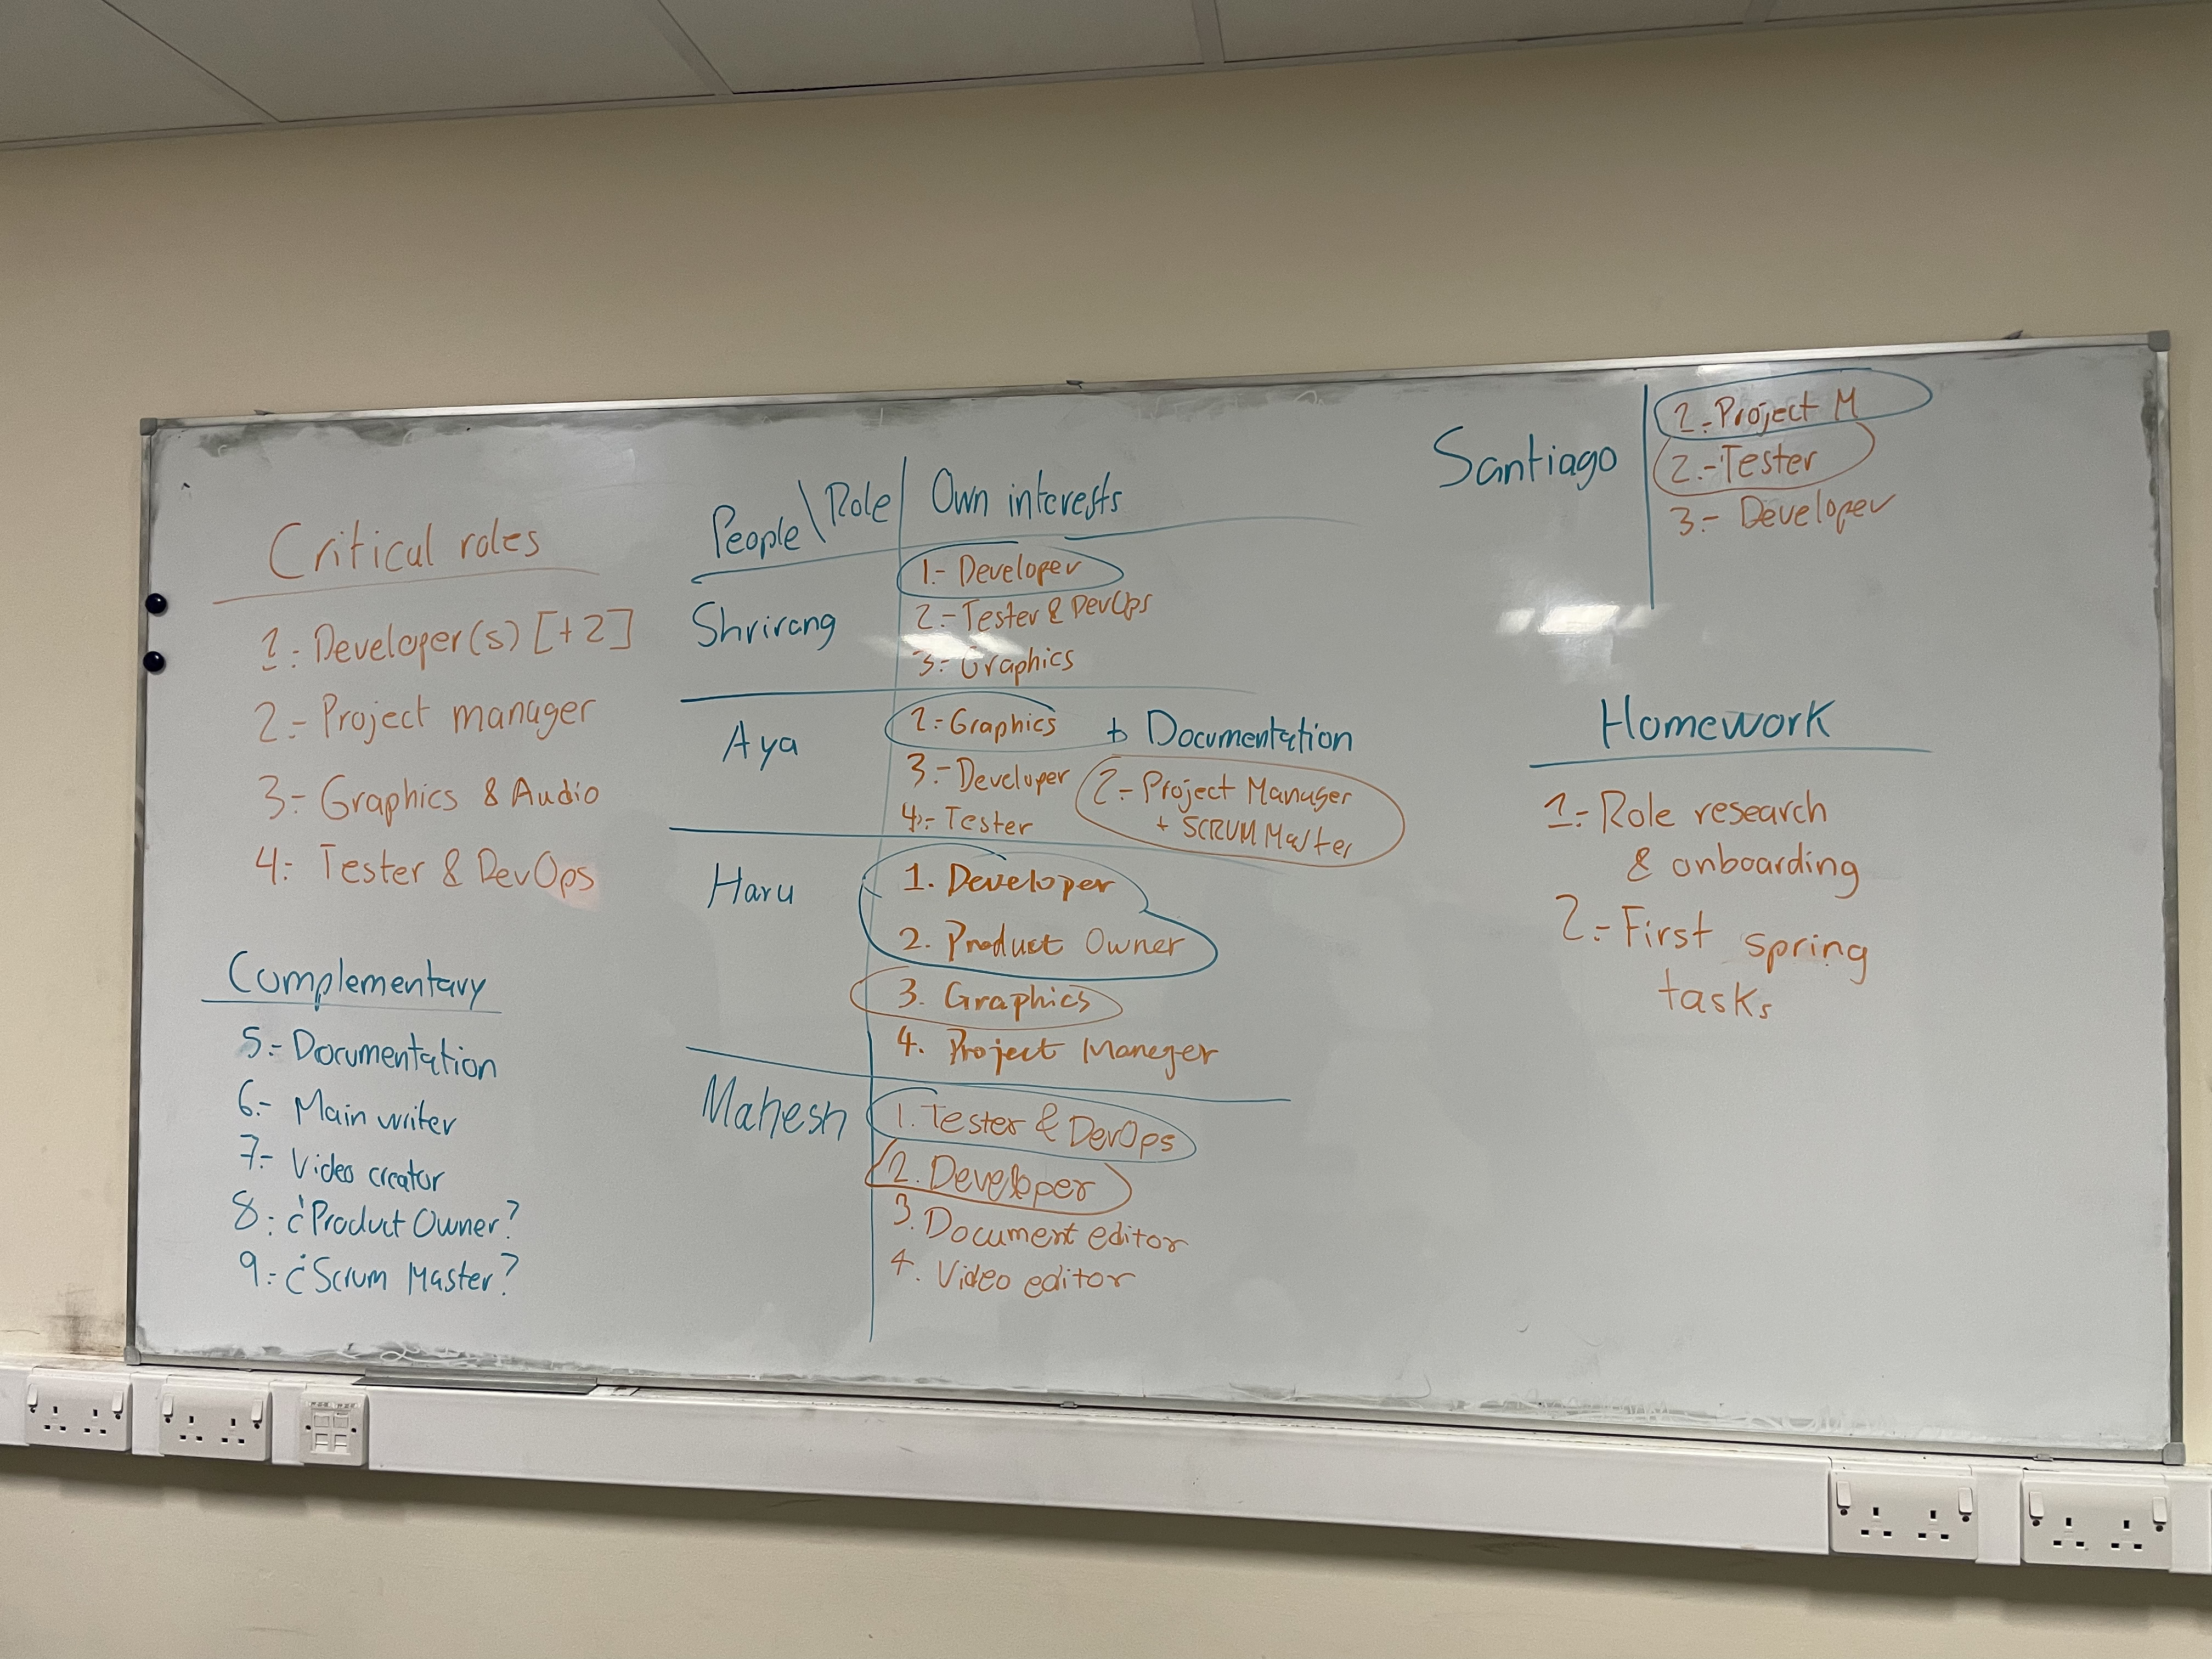 Critical roles
1.- Developer(s) [+2]
2.- Project manager
3.- Graphics & Audio
4.- Tester & DevOps
Complementary
5.- Documentation
6.- Main writer
7.- Video creator
8.- ¿Product Owner?
9.- ¿Scrum Master?
People\Role
Own interests
Shrirang
1.- Developer
2.- Tester & DevOps
3.- Graphics
Aya
1.- Graphics + Documentation
3.- Developer
4.- Tester
2.- Project Manager
+ SCRUM Master
Haru
1. Developer
2. Product Owner
3. Graphics
4. Project Maneger
Mahesh
1. Tester & DevOps
2. Developer
3. Document editor
4. Video editor
Santiago
1.- Project M
2.- Tester
3.- Developer
Homework
1.- Role research
& onboarding
2.- First spring
tasks